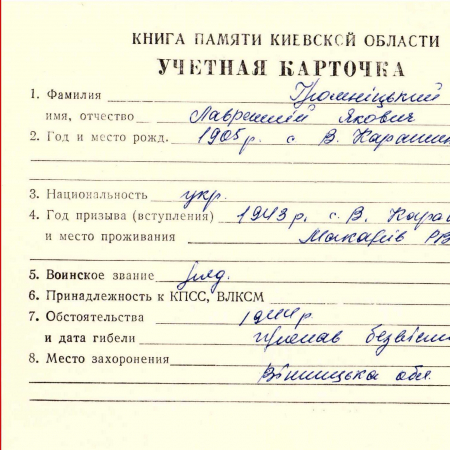 КНИГА ПАМЯТИ КИЕВСКОЙ ОБЛАСТИ
УЧЕТНАЯ КАРТОЧКА
1. Фамилия Громніцький
имя, отчество Лаврентій Якович
2. Год и место рожд. 1905 р. с. В. Карашин
3. Национальность укр.
4. Год призыва (вступления) 1943 р. с. В. Караш
и место проживания Макарів РВ
5. Воинское звание
6. Принадлежность к КПСС, ВЛКСМ
7. Обстоятельства 1944 р.
и дата гибели пропав безвісти
8. Место захоронения
Вінницька обл